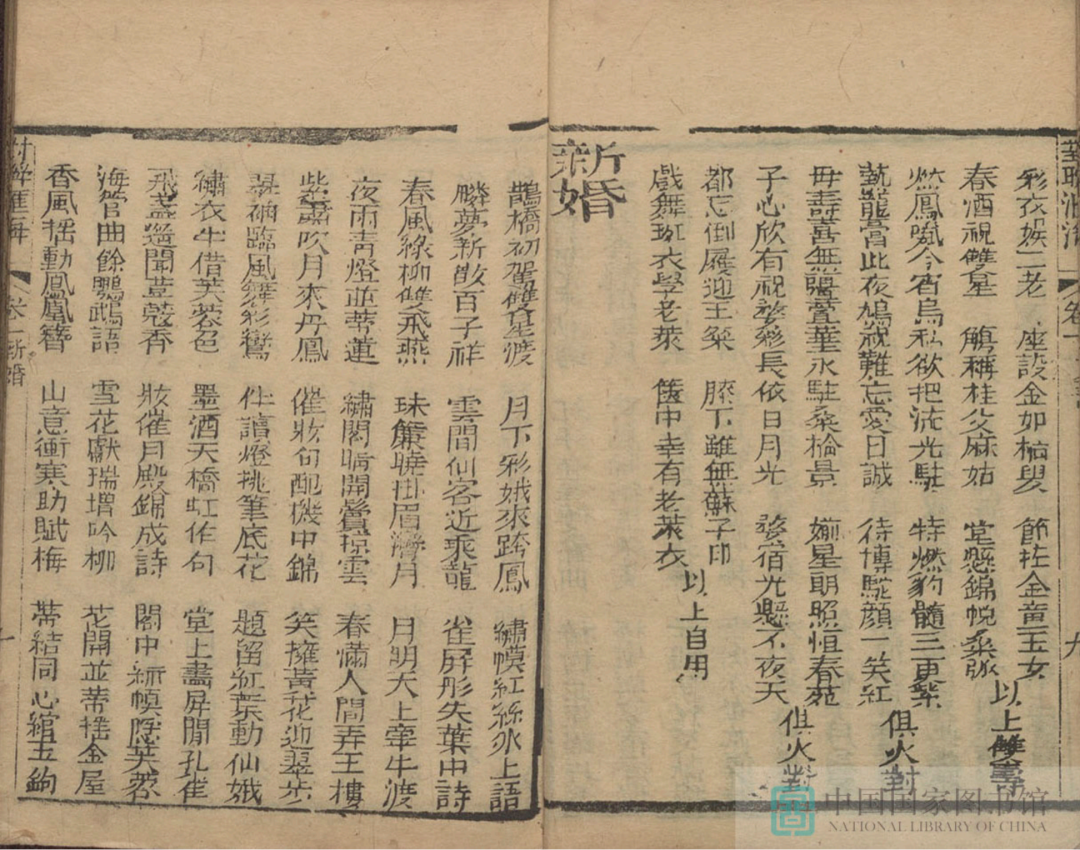 彩衣娛二老　座設金如桔叟　節拄金童玉女
春酒祝雙星　觴稱桂父麻姑　堂懸錦帨桑弧　以上雙壽
燃鳳㷼今宵烏私欲把流光駐　特燃豹髓三更粲
熱龍膏此夜鳩祝難忘愛日誠　待博駝顏一笑紅　俱火對
毋壽喜無疆萱華永駐桑榆景　婺星朗照恒春苑
子心欣有祝婺彩長依日月光　婺宿光懸不夜天　俱火對
都忘倒屐迎王粲　膝下雖無蘇子印
戲舞斑衣學老萊　篋中幸有老萊衣　以上自用
新婚
鵲橋初駕雙星渡　月下彩娥來跨鳳　繡幙紅絲氷上語
麟夢新啟百子祥　雲間仙客近乘龍　雀屏形失葉中詩
春風綠柳雙飛燕　珠簾曉掛眉灣月　月明天上牽牛渡
夜雨青燈並蒂蓮　繡閣晴開鬢掠雲　春滿人間弄玉樓
紫簫吹月來丹鳳　催妝句配機中錦　笑擁黃花迎翠步
翠袖臨風舞彩鸞　伴讀燈挑筆底花　題留紅葉動仙娥
繡衣牛借芙蓉色　墨酒天橋虹作句　堂上畵屏開孔雀
飛盞遙聞荳蔻香　妝催月殿錦成詩　閣中綵幙隱芙蓉
海管曲餘鸚鵡語　雪花獻瑞增吟柳　花開並蒂搖金屋
香風搖動鳳凰簪　山意衝寒助賦梅　帶結同心綰玉鉤
卷一新婚
中国国家图书馆
NATIONAL LIBRARY OF CHINA